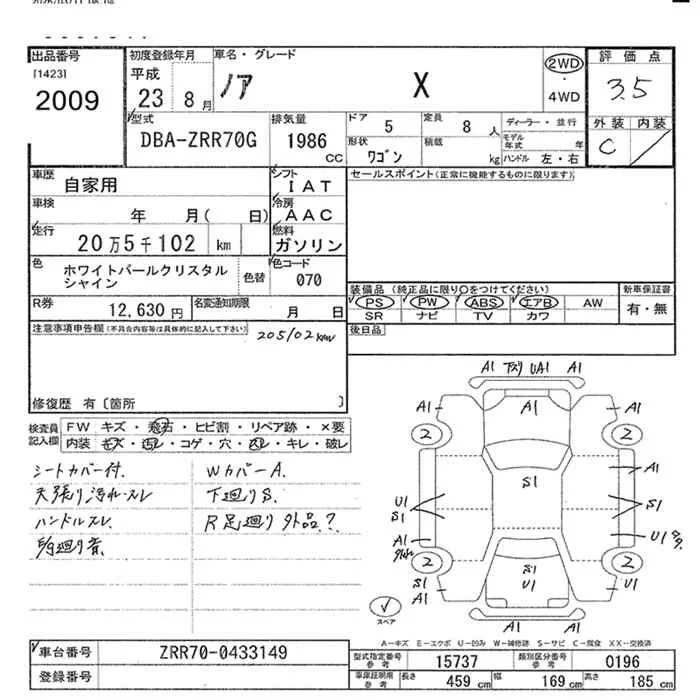 出品番号 初度登録年月 車名・グレード 評価点
[1423] 平成 ノア X 2WD 3.5
2009 23 8月 ・ 4WD
型式 排気量 ドア 5 定員 8人 ディーラー・並行 外装 内装
DBA-ZRR70G 1986 CC 形状 ワゴン 積載 kg モデル年式 年 C
ハンドル 左・右
車歴 自家用 シフト IAT セールスポイント(正常に機能するものに限ります)
車検 年 月( 日) 冷房 AAC
走行 20万5千102 km 燃料 ガソリン
色 ホワイトパールクリスタル 色替 色コード
シャイン 070
装備品(純正品に限り○をつけてください) 新車保証書
R券 12,630円 名変通知期限 月 日 PS PW ABS エアB AW 有・無
SR ナビ TV カワ
注意事項申告欄(不具合内容等は具体的に記入して下さい) 205102km 後日品
修復歴 有〔箇所 〕
検査員 FW キズ・飛石・ヒビ割・リペア跡・×要
記入欄 内装 キズ・汚レ・コゲ・穴・スレ・キレ・破レ
シートカバー付. WカバーA.
天張り汚れ・スレ 下廻りS.
ハンドルスレ. R足廻り外品?
A1 UA1 A1
A1 A1 A1
2 2
S1 A1
U1 S1
S1
A1 U1
2 2
S1 S1 U1
A1 U1 A1
スペア
A-キズ E-エクボ U-凹み W-補修跡 S-サビ C-腐食 XX-交換済
車台番号 ZRR70-0433149 型式指定番号 参考 15737 類別区分番号 参考 0196
登録番号 車庫証明用 参考 長さ 459 cm 幅 169 cm 高さ 185 cm